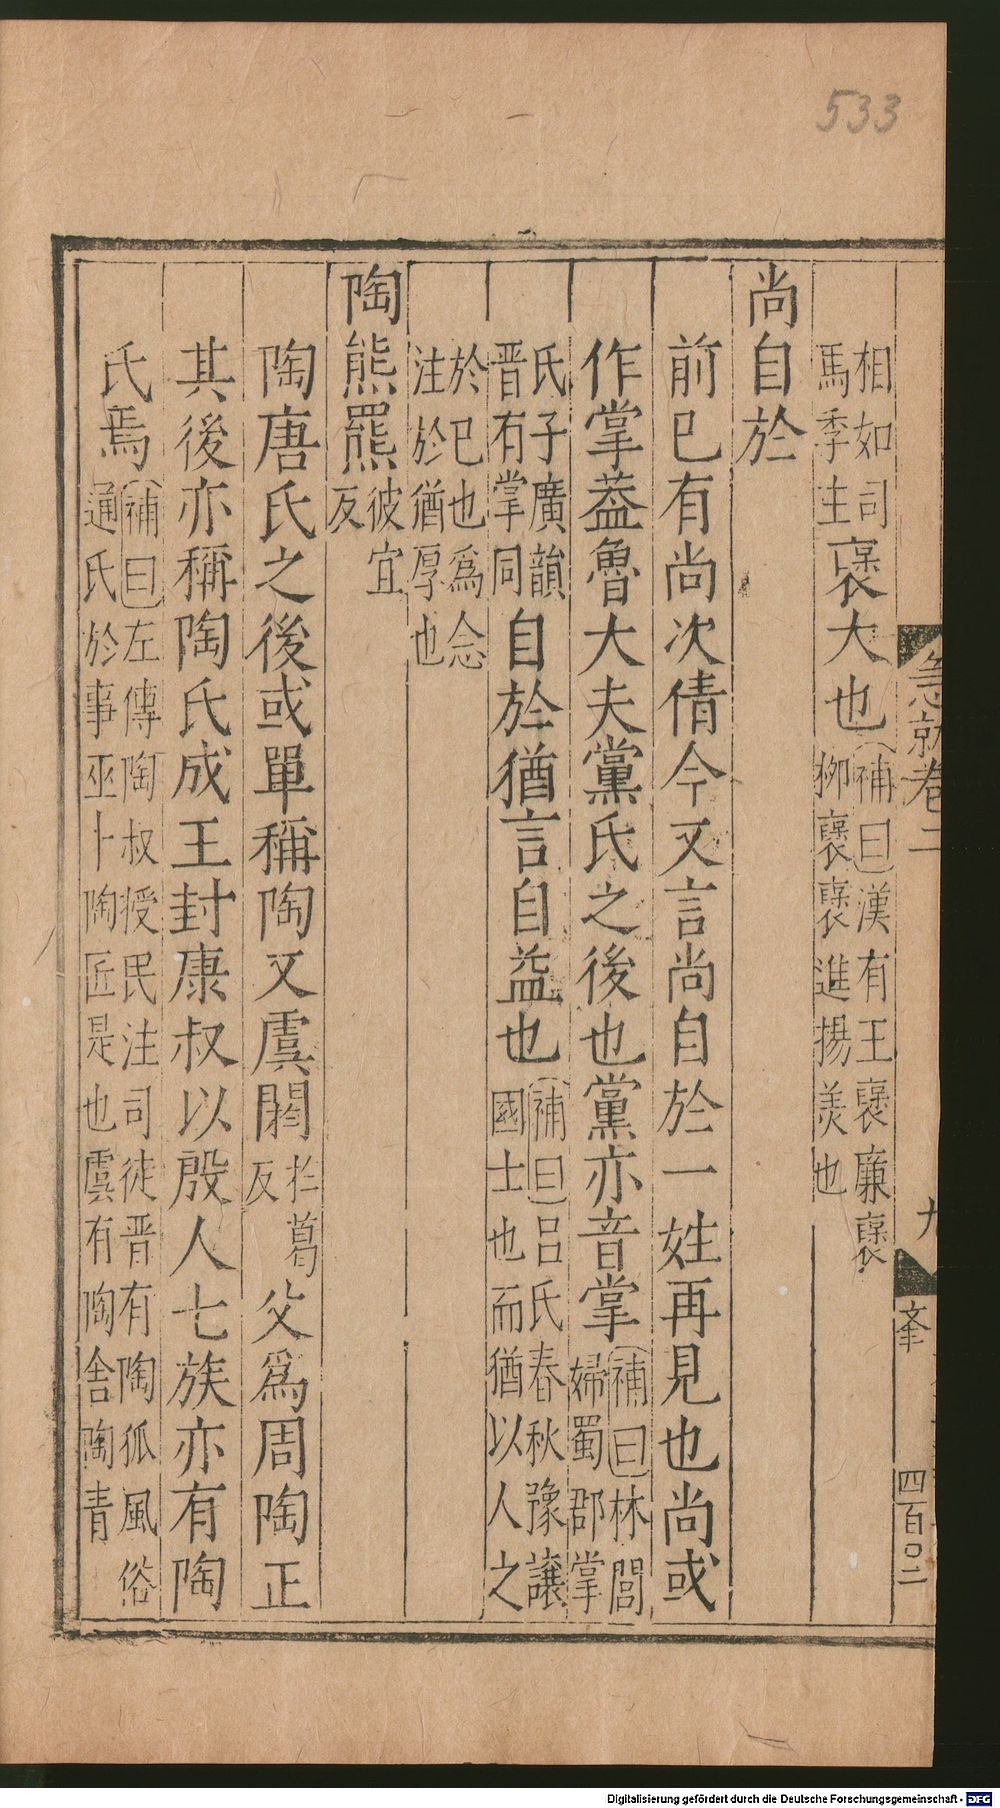 533
相如司馬季主褒大也補曰漢有王褒廉褒挪褒褒進揚羙也
尚自於
前已有尚次倩今又言尚自於一姓再見也尚或
作掌葢魯大夫黨氏之後也黨亦音掌補曰林閭婦蜀郡掌
氏子廣韻晋有掌同自於猶言自益也補曰吕氏春秋豫讓國士也而猶以人之
於已也爲念注於猶厚也
陶熊羆彼宜反
陶唐氏之後或單稱陶又虞閼扵葛反父爲周陶正
其後亦稱陶氏成王封康叔以殷人七族亦有陶
氏焉補曰左傳陶叔授民注司徒晋有陶狐風俗通氏於事巫卜陶匠是也虞有陶舍陶青
急就卷二
九
四百〇二
Digitalisierung gefördert durch die Deutsche Forschungsgemeinschaft - DFG